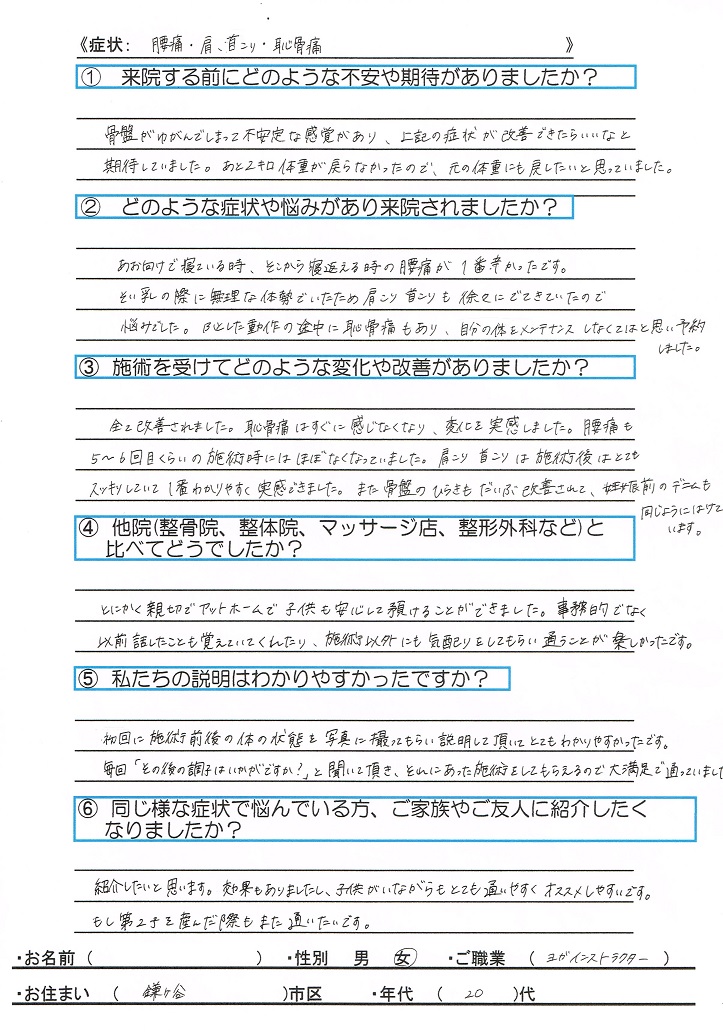 《症状: 腰痛・肩、首こり・恥骨痛 》
① 来院する前にどのような不安や期待がありましたか？
骨盤がゆがんでしまって不安定な感覚があり、上記の症状が改善できたらいいなと
期待していました。あと2キロ体重が戻らなかったので、元の体重にも戻したいと思っていました。
② どのような症状や悩みがあり来院されましたか？
あお向けで寝ている時、そこから寝返える時の腰痛が1番辛かったです。
そい乳の際に無理な体勢でいたため肩こり首こりも徐々にでてきていたので
悩みでした。ふとした動作の途中に恥骨痛もあり、自分の体をメンテナンスしなくてはと思い予約
しました。
③ 施術を受けてどのような変化や改善がありましたか？
全て改善されました。恥骨痛はすぐに感じなくなり、変化を実感しました。腰痛も
5～6回目くらいの施術時にはほぼなくなっていました。肩こり首こりは施術後はとても
スッキリしていて1番わかりやすく実感できました。また骨盤のひらきもだいぶ改善されて、妊娠前のデニムも
同じようにはけて
います。
④ 他院(整骨院、整体院、マッサージ店、整形外科など)と
比べてどうでしたか？
とにかく親切でアットホームで子供も安心して預けることができました。事務的でなく
以前話したことも覚えていてくれたり、施術以外にも気配りをしてもらい通うことが楽しかったです。
⑤ 私たちの説明はわかりやすかったですか？
初回に施術前後の体の状態を写真に撮ってもらい説明して頂いてとてもわかりやすかったです。
毎回「その後の調子はいかがですか？」と聞いて頂き、それにあった施術をしてもらえるので大満足で通っていました
⑥ 同じ様な症状で悩んでいる方、ご家族やご友人に紹介したく
なりましたか？
紹介したいと思います。効果もありましたし、子供がいながらもとても通いやすくオススメしやすいです。
もし第2子を産んだ際もまた通いたいです。
・お名前（ ） ・性別 男 女 ・ご職業（ヨガインストラクター）
・お住まい（鎌ヶ谷）市区 ・年代（20）代